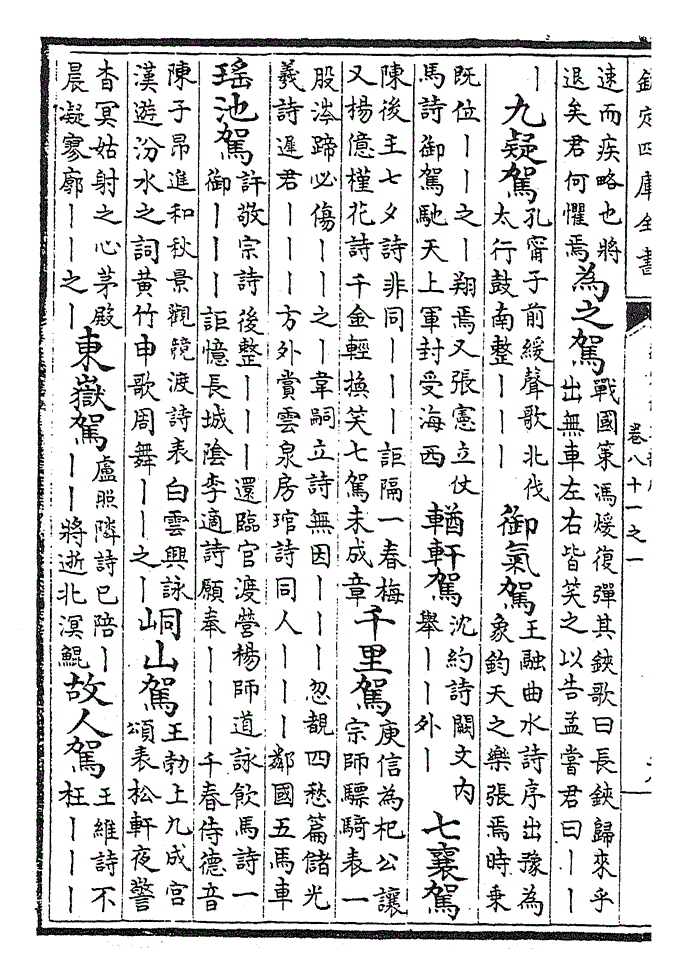 欽定四庫全書
卷八十一之一
速而疾略也將退矣君何懼焉 為之駕 戰國策馮煖復彈其鋏歌曰長鋏歸來乎出無車左右皆笑之以告孟嘗君曰丨丨
丨 九疑駕 孔甯子前緩聲歌北伐太行鼓南整丨丨丨 御氣駕 王融曲水詩序出豫為象鈞天之樂張焉時乘
既位丨丨之丨翔焉又張憲立仗馬詩御駕馳天上軍封受海西 輶軒駕 沈約詩闕文内舉丨丨外丨 七襄駕
陳後主七夕詩非同丨丨丨詎隔一春梅又楊億槿花詩千金輕換笑七駕未成章 千里駕 庾信為杞公讓宗師驃騎表一
股涔蹄必傷丨丨之丨韋嗣立詩無因丨丨丨忽覩四愁篇儲光羲詩遲君丨丨丨方外賞雲泉房琯詩同人丨丨丨鄰國五馬車
瑤池駕 許敬宗詩後整丨丨丨還臨官渡營楊師道詠飲馬詩一御丨丨丨詎憶長城陰李適詩願奉丨丨丨千春侍德音
陳子昂進和秋景觀競渡詩表白雲興詠漢遊汾水之詞黃竹申歌周舞丨丨之丨 峒山駕 王勃上九成宮頌表松軒夜警
杳冥姑射之心茅殿晨凝寥廓丨丨之丨 東嶽駕 盧照隣詩已陪丨丨丨將逝北溟鯤 故人駕 王維詩不枉丨丨丨